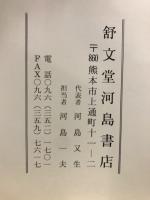 舒文堂河島書店
〒860 熊本市上通町十一―二
代表者 河島又生
担当者 河島一夫
電話〇九六(三五二)一七〇一
FAX〇九六(三五九)七六一七